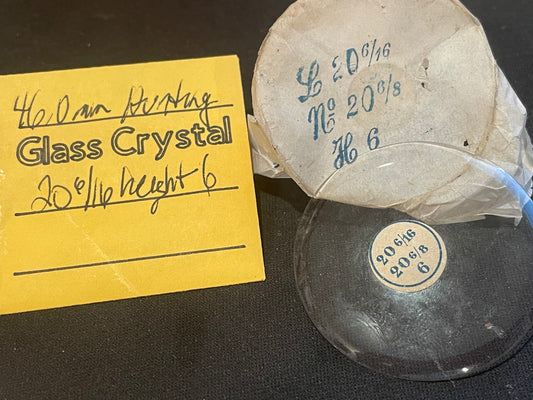 46.0 mm Hunting
Glass Crystal
20 6/16 height 6
L 20 6/16
No 20 6/8
H 6
20 6/16
20 6/8
6